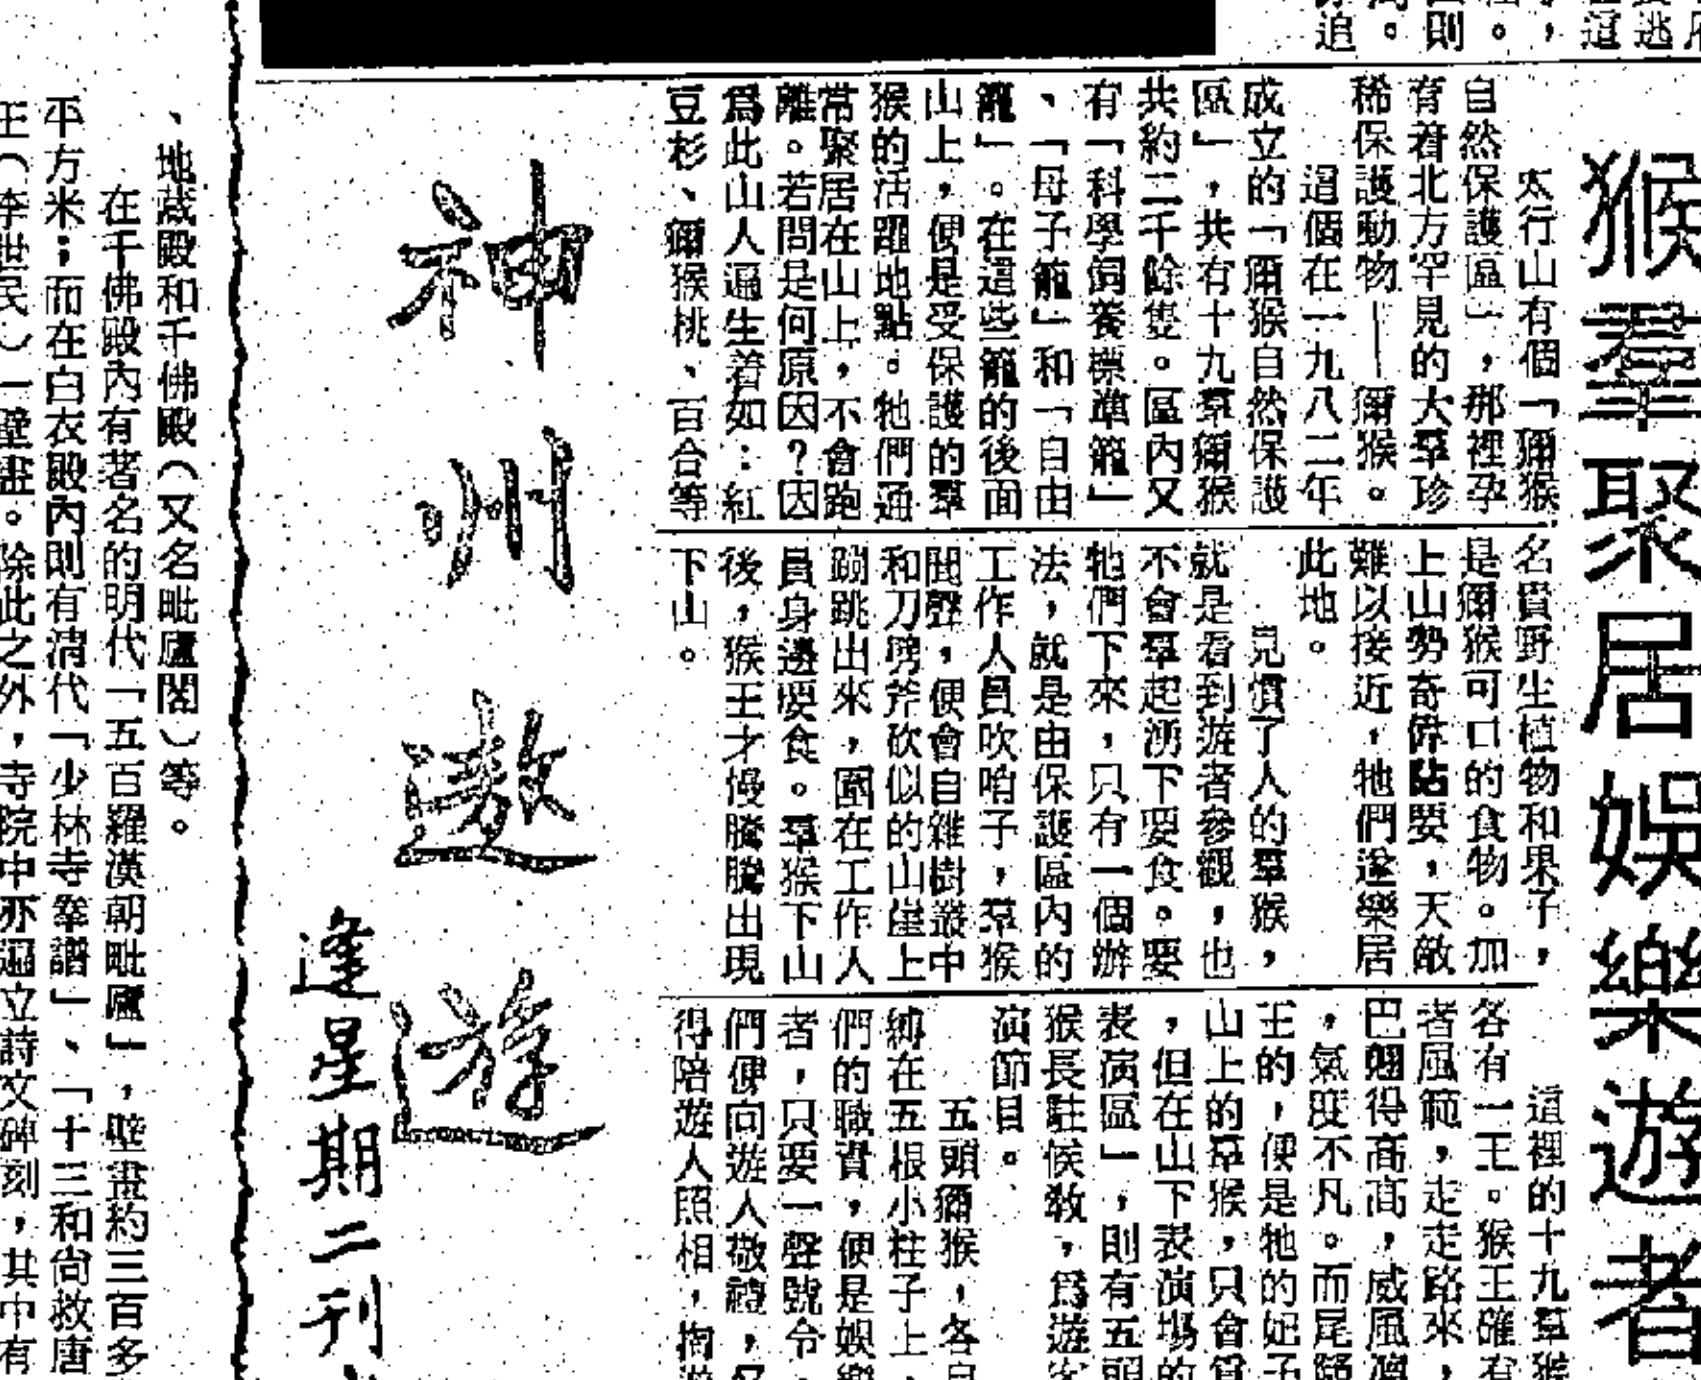 猴羣聚居娛樂遊者
太行山有個「獼猴
自然保護區」，那裡孕
育着北方罕見的大羣珍
稀保護動物——獼猴。
這個在一九八二年
成立的「獼猴自然保護
區」，共有十九羣獼猴
共約二千餘隻。區內又
有「科學飼養標準籠」
、「母子籠」和「自由
籠」。在這些籠的後面
山上，便是受保護的羣
猴的活躍地點。牠們通
常聚居在山上，不會跑
離。若問是何原因？因
爲此山人遍生着如：紅
豆杉、獼猴桃、百合等
名貴野生植物和果子，
是獼猴可口的食物。加
上山勢奇偉險要，天敵
難以接近，牠們遂樂居
此地。
見慣了人的羣猴，
就是看到遊者參觀，也
不會羣起湧下要食。要
牠們下來，只有一個辦
法，就是由保護區內的
工作人員吹哨子，羣猴
聞聲，便會自雜樹叢中
和刀劈斧砍似的山崖上
蹦跳出來，圍在工作人
員身邊要食。羣猴下山
後，猴王才慢騰騰出現
下山。
這裡的十九羣猴
各有一王。猴王確有
者風範，走走路來，
巴翹得高高，威風凜
，氣度不凡。而尾隨
王的，便是牠的妃子
山上的羣猴，只會
，但在山下表演場的
表演區」，則有五頭
猴長駐候教，爲遊客
演節目。
五頭獼猴，各自
縛在五根小柱子上，
們的職責，便是娛樂
者，只要一聲號令
們便向遊人敬禮，又
得陪遊人照相，
神州遨遊
逢星期二刊
、地藏殿和千佛殿（又名毗廬閣）等。
在千佛殿內有著名的明代「五百羅漢朝毗廬」，壁畫約三百多
平方米；而在白衣殿內則有清代「少林寺拳譜」、「十三和尚救唐
王（李世民）」壁畫。除此之外，寺院中亦遍立詩文碑刻，其中有